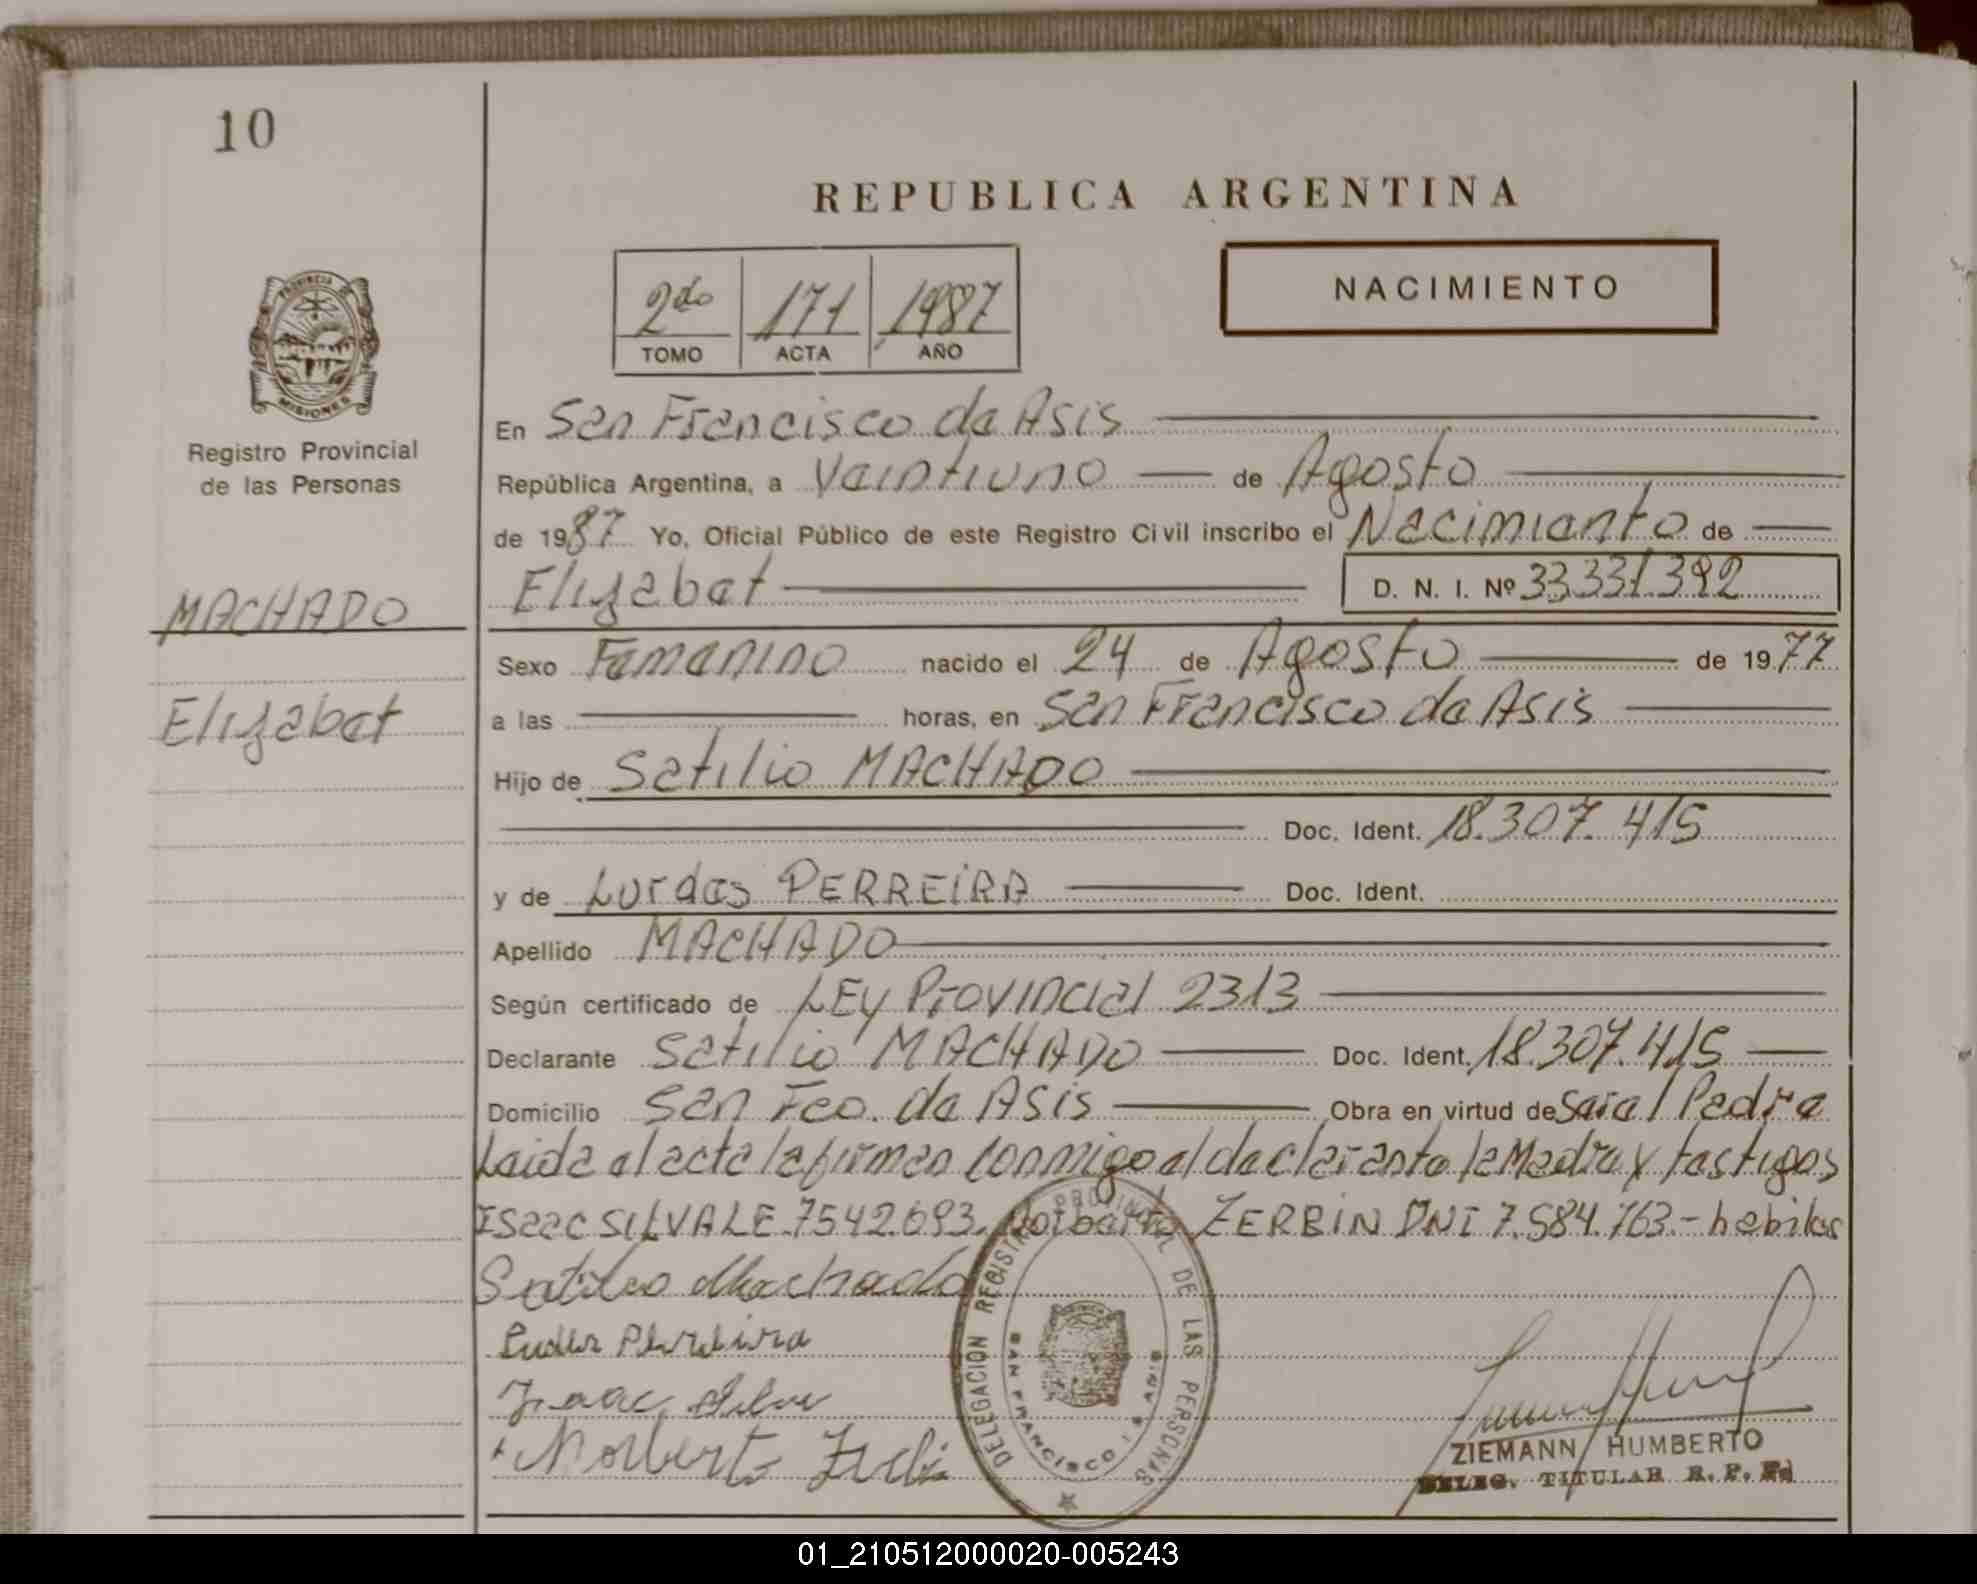 10
REPUBLICA ARGENTINA
2do 171 1987
TOMO ACTA AÑO
NACIMIENTO
PROVINCIA DE
MISIONES
Registro Provincial
de las Personas
En San Francisco de Asis
República Argentina, a Veintiuno de Agosto
de 1987 Yo, Oficial Público de este Registro Civil inscribo el Nacimiento de
Elizabet D. N. I. Nº 33.331.392
MACHADO
Elizabet
Sexo Femenino nacido el 24 de Agosto de 1977
a las horas, en San Francisco de Asis
Hijo de Satilio MACHADO
Doc. Ident. 18.307.415
y de Lurdes PERREIRA Doc. Ident.
Apellido MACHADO
Según certificado de LEy Provincial 2313
Declarante Satilio MACHADO Doc. Ident. 18.307.415
Domicilio San Fco. de Asis Obra en virtud de Sar el Padre
Leida el acta la firman conmigo el declarante la Madre y testigos
Isaac SILVA LE 7542.693. Norberto ZERBIN DNI 7.584.763.- habiles
Satilio Machado
Pereira
Isaac Silva
Norberto
DELEGACION REGISTRO PROVINCIAL DE LAS PERSONAS
SAN FRANCISCO DE ASIS
ZIEMANN HUMBERTO
DELEG. TITULAR R. P.
01_210512000020-005243